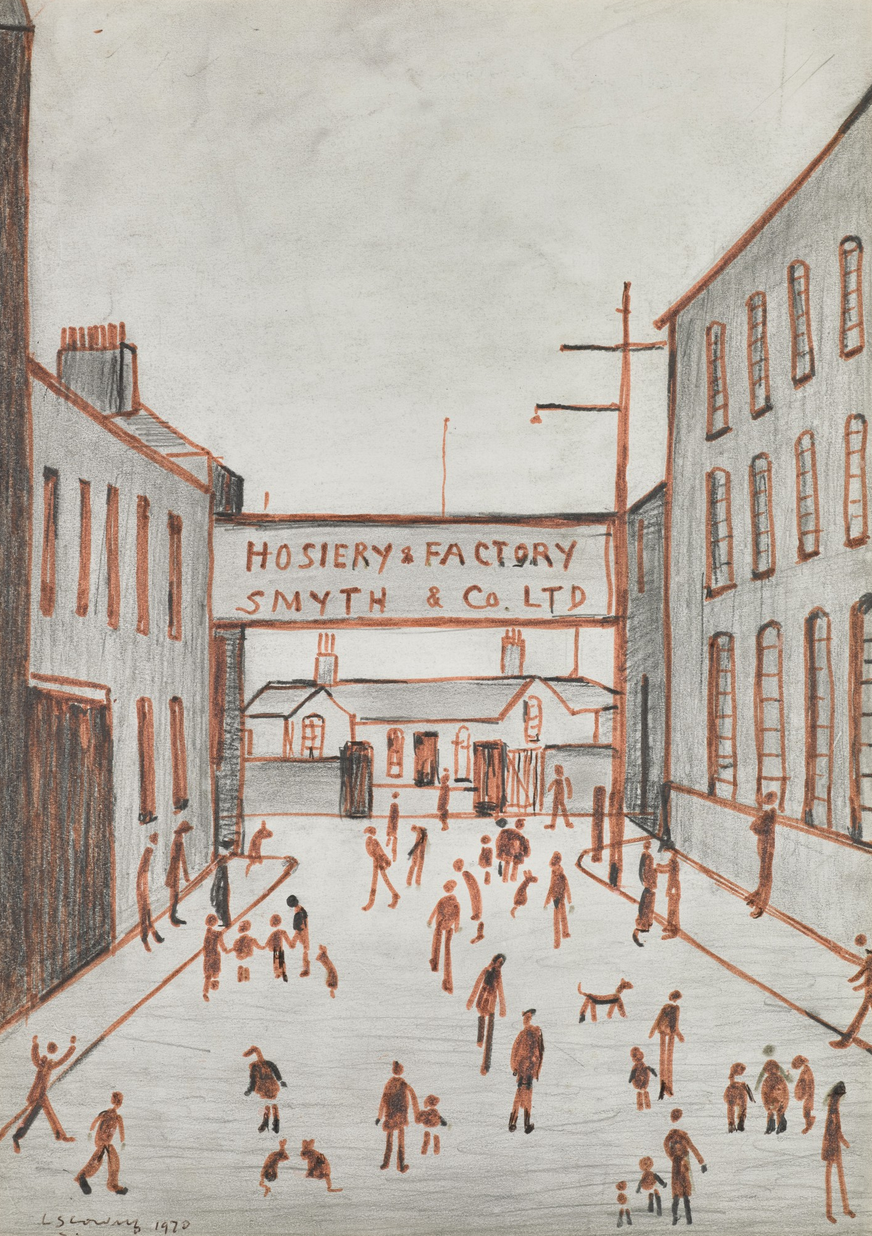 HOSIERY & FACTORY
SMYTH & Co. LTD
LS Lowry 1970